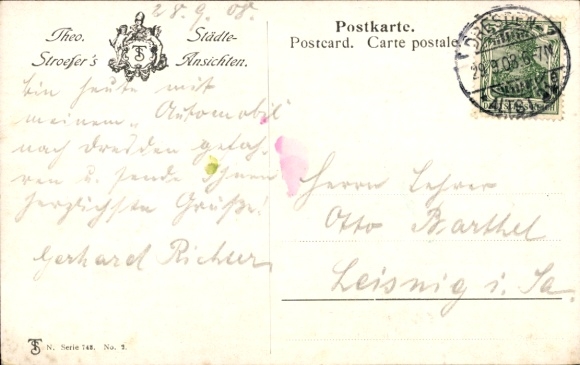 28.9.08.
Theo. Stroefer's
Städte-Ansichten.
TS
Postkarte.
Postcard. Carte postale.
DRESDEN-
ALTST.
Bin heute mit
meinem „Automobil"
nach Dresden gefah-
ren u. sende Ihnen
herzlichste Grüße!
Gerhard Richter
Herrn Lehrer
Otto Barthel
Leisnig i. Sa.
TS N. Serie 748. No. 3.